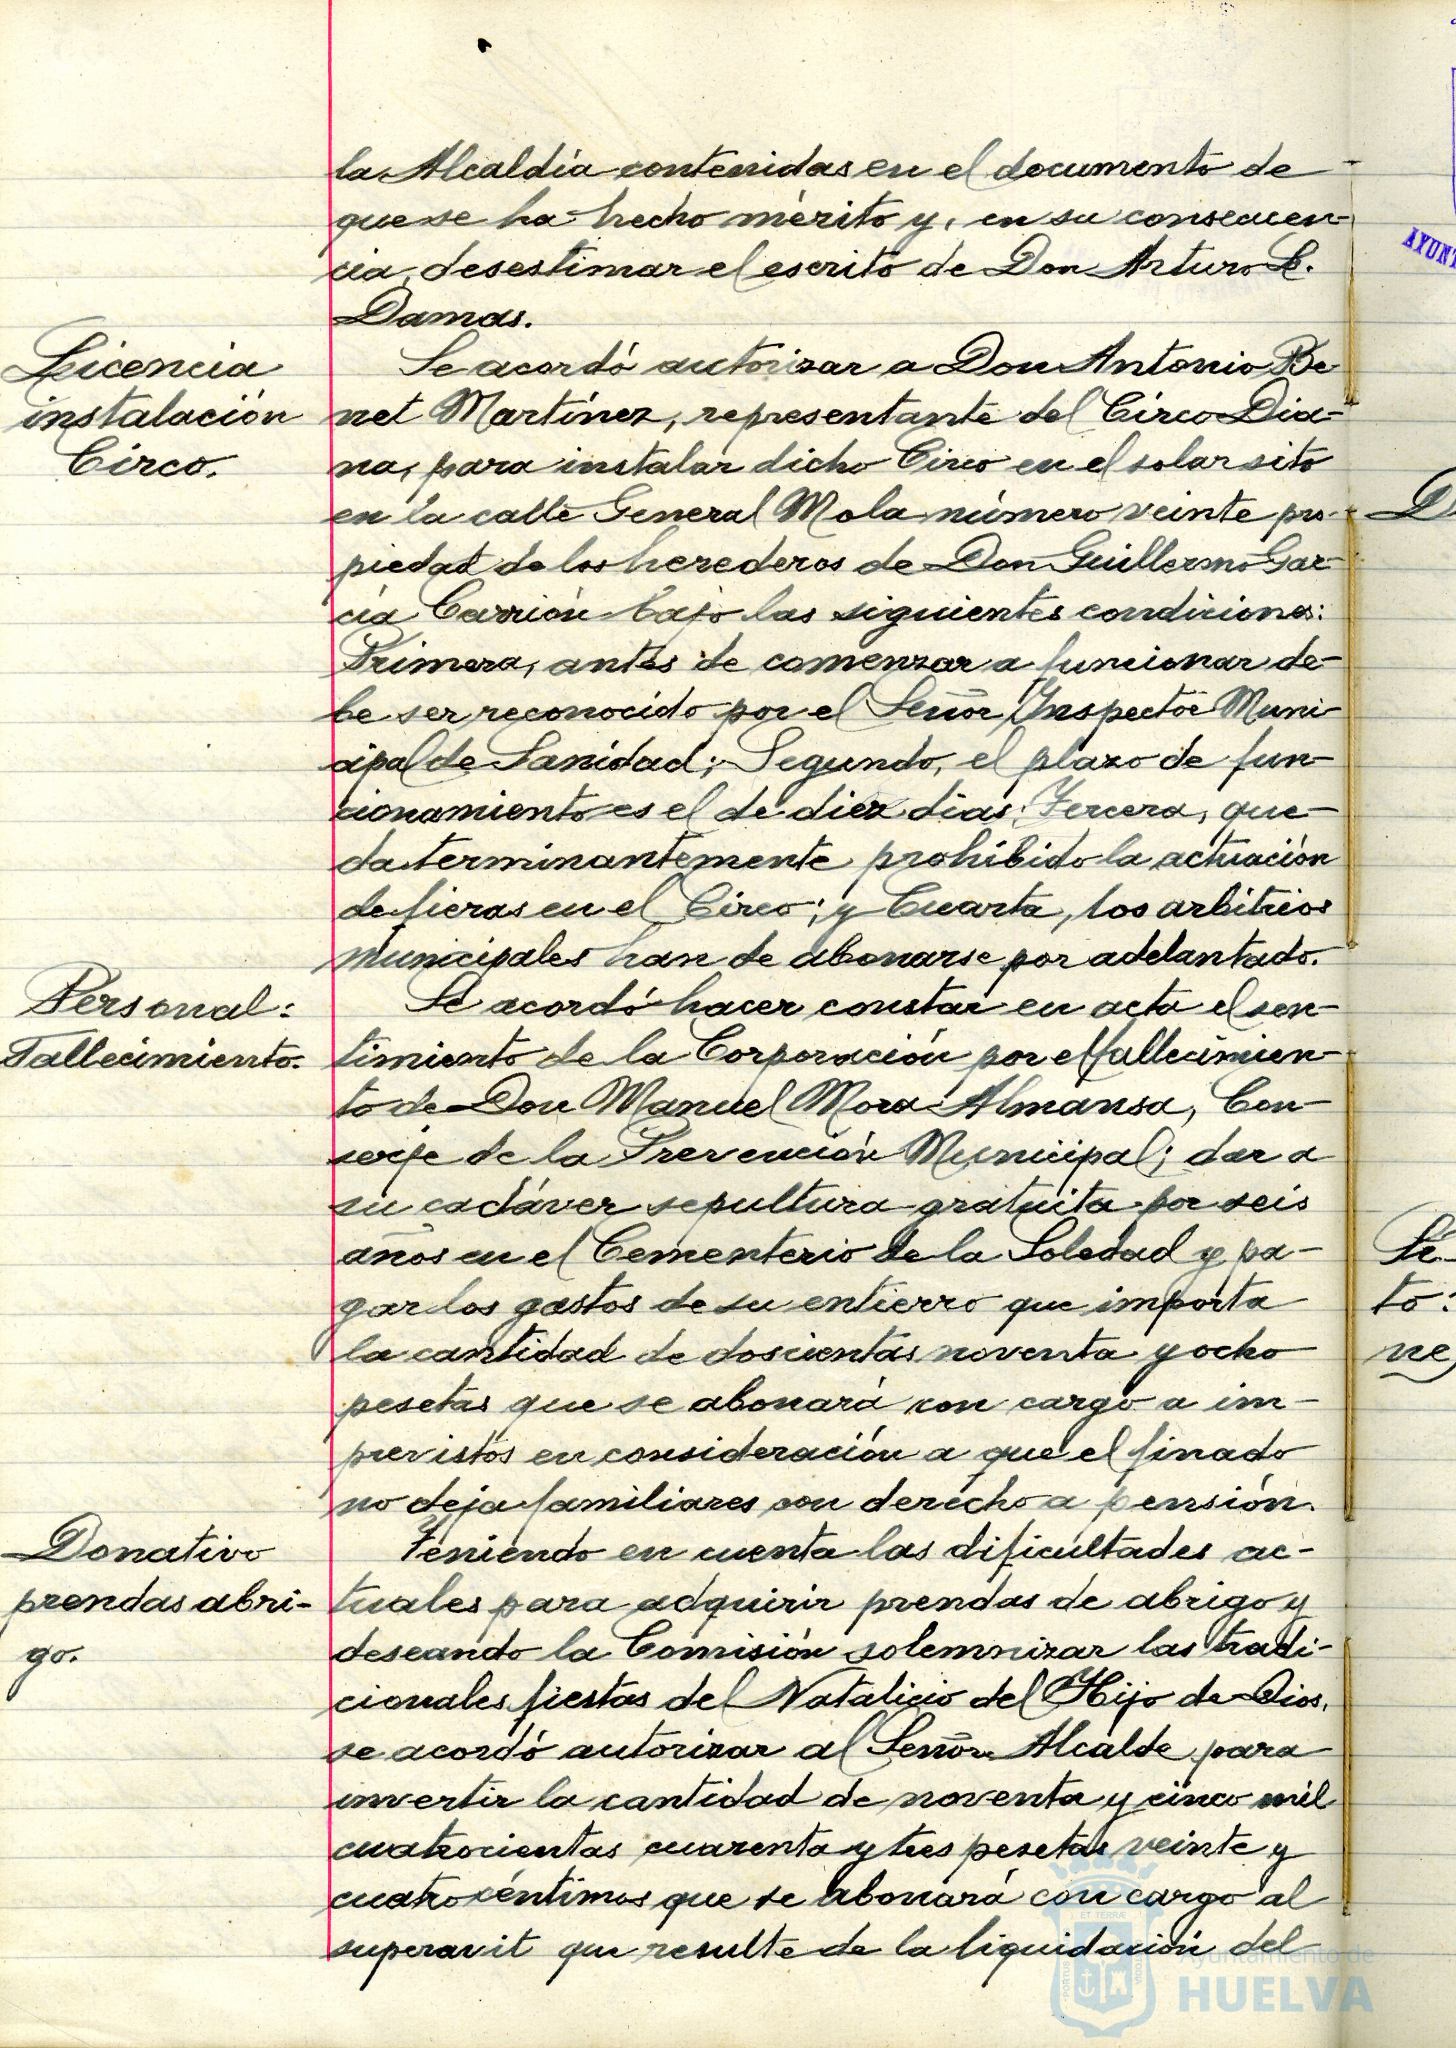 la Alcaldía contenidas en el documento de
que se ha hecho mérito y, en su consecuen-
cia, desestimar el escrito de Don Arturo L.
Damas.
Licencia
instalación
Circo.
Se acordó autorizar a Don Antonio Be
net Martínez, representante del Circo Dia-
na, para instalar dicho Circo en el solar sito
en la calle General Mola número veinte pro-
piedad de los herederos de Don Guillermo Gar-
cía Carrión bajo las siguientes condiciones:
Primera, antes de comenzar a funcionar de-
be ser reconocido por el Señor Inspector Muni-
cipal de Sanidad; Segundo, el plazo de fun-
cionamiento es el de diez días; Tercera, que-
da terminantemente prohibido la actuación
de fieras en el Circo; y Cuarta, los arbitrios
municipales han de abonarse por adelantado.
Personal:
Fallecimiento.
Se acordó hacer constar en acta el sen-
timiento de la Corporación por el fallecimien-
to de Don Manuel Mora Almansa, Con-
serje de la Prevención Municipal; dar a
su cadáver sepultura gratuita por seis
años en el Cementerio de la Soledad y pa-
gar los gastos de su entierro que importa
la cantidad de doscientas noventa y ocho
pesetas que se abonará con cargo a im-
previstos en consideración a que el finado
no deja familiares con derecho a pensión.
Donativo
prendas abri-
go.
Teniendo en cuenta las dificultades ac-
tuales para adquirir prendas de abrigo y
deseando la Comisión solemnizar las tradi-
cionales fiestas del Natalicio del Hijo de Dios,
se acordó autorizar al Señor Alcalde para
invertir la cantidad de noventa y cinco mil
cuatrocientas cuarenta y tres pesetas veinte y
cuatro céntimos que se abonará con cargo al
superavit que resulte de la liquidación del
AYUNT
to:
Ayuntamiento de
HUELVA